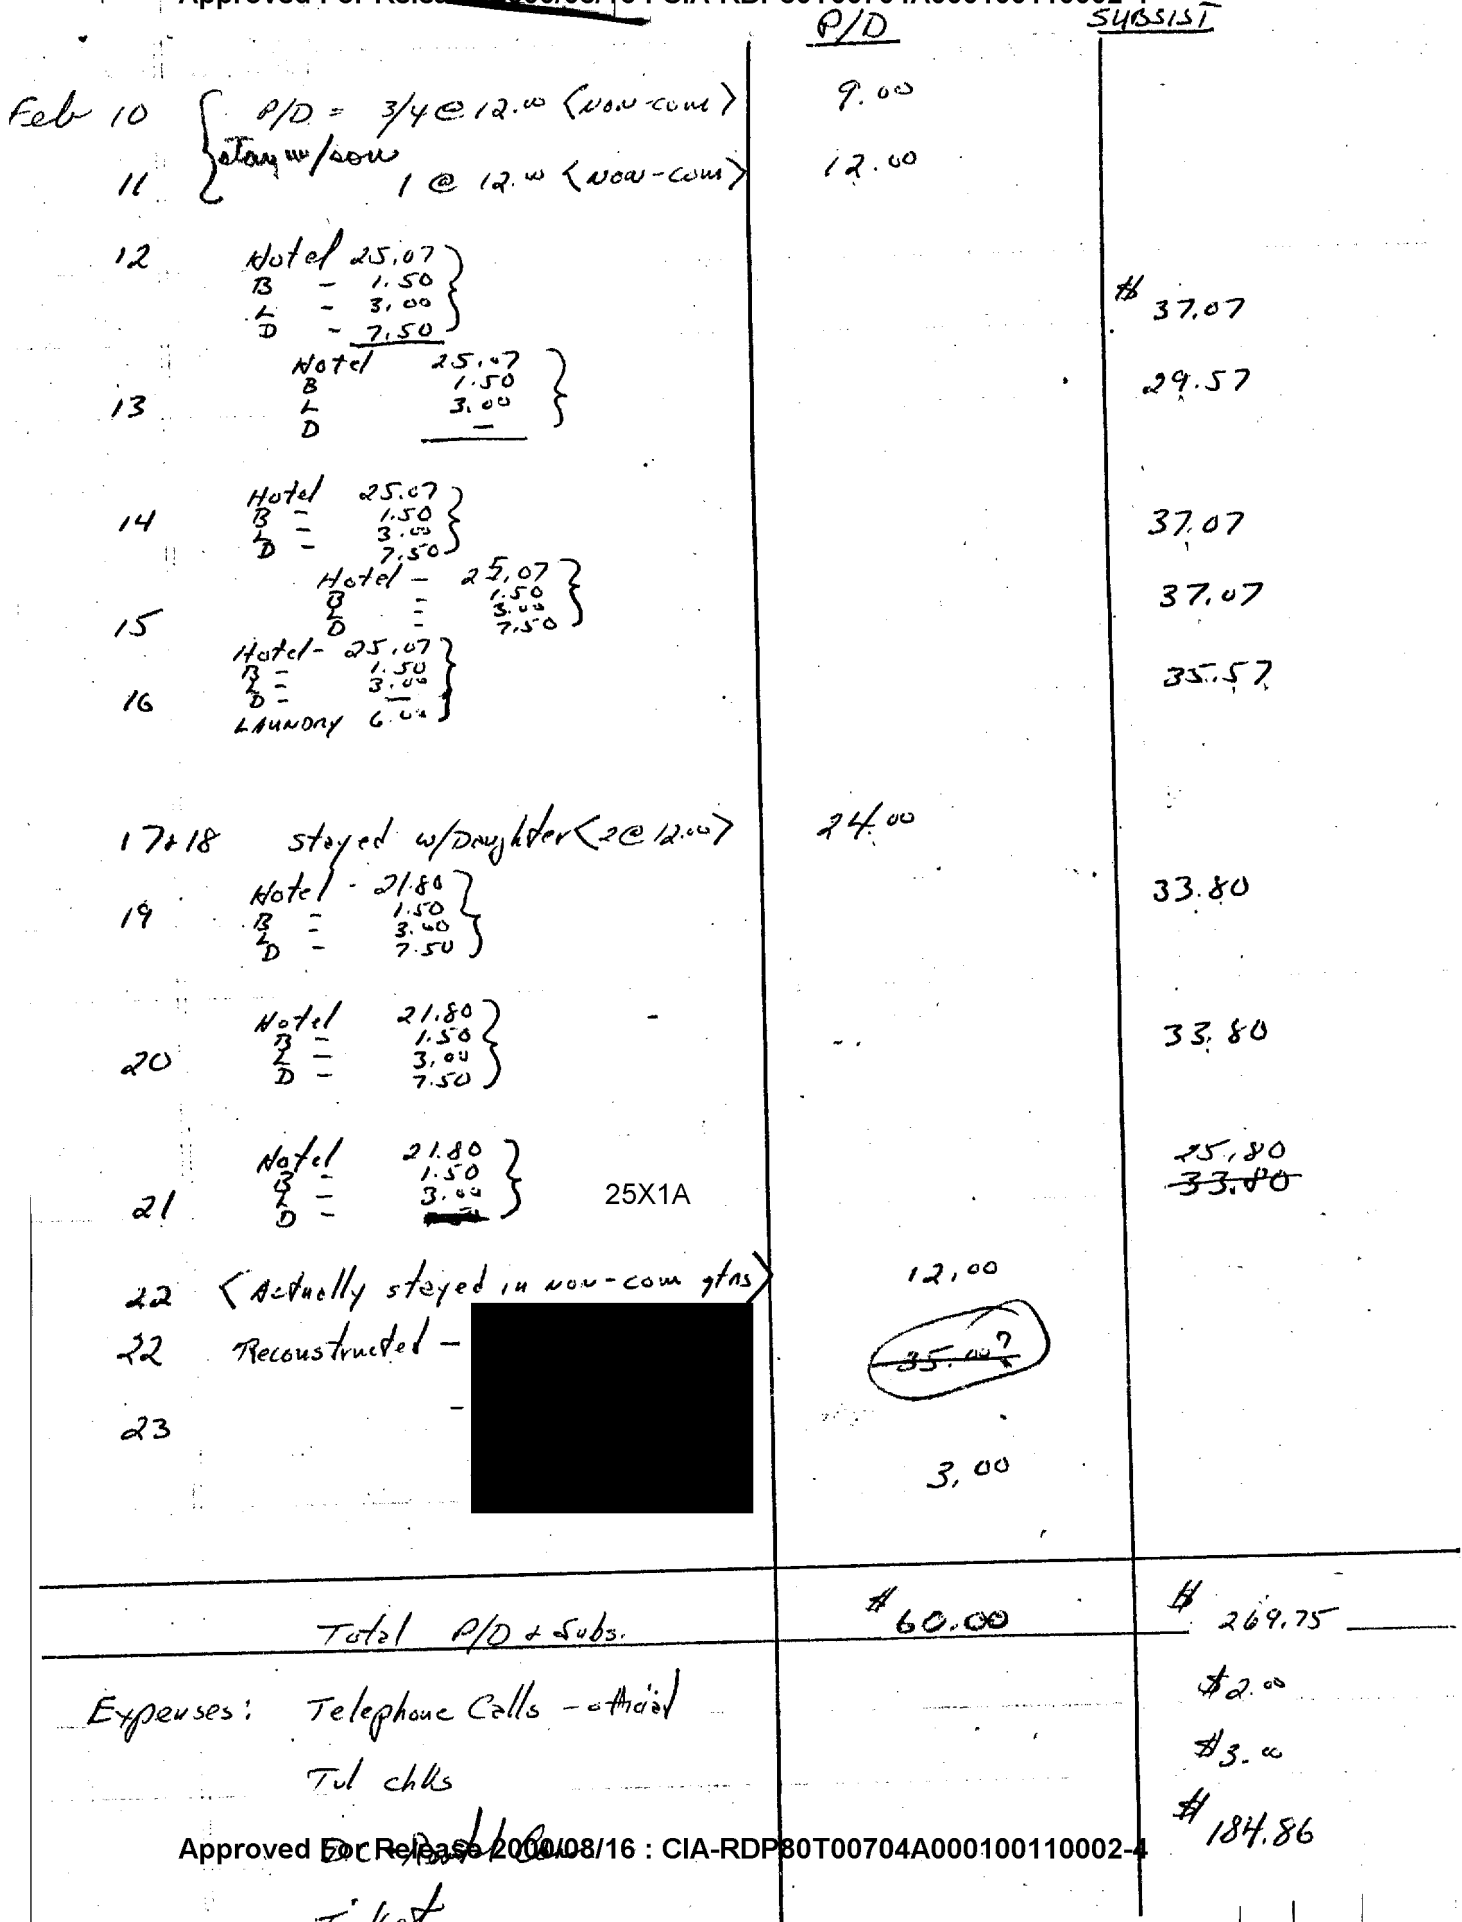 P/D SUBSIST
Feb 10 P/D = 3/4 @ 12.00 <NON-com> 9.00
stay w/son
11 1 @ 12.00 <NON-com> 12.00
12 Hotel 25.07
B - 1.50
L - 3.00
D - 7.50
$ 37.07
Hotel 25.07
B 1.50
13 L 3.00
D -
29.57
Hotel 25.07
14 B - 1.50
L - 3.00
D - 7.50
37.07
Hotel - 25.07
B - 1.50
L - 3.00
15 D - 7.50
37.07
Hotel - 25.07
B - 1.50
L - 3.00
16 D - —
LAUNDRY 6.00
35.57
17+18 stayed w/Daughter <2@12.00> 24.00
Hotel - 21.80
19 B - 1.50
L - 3.00
D - 7.50
33.80
Hotel 21.80
B - 1.50
20 L - 3.00
D - 7.50
33.80
Hotel 21.80
B - 1.50
21 L - 3.00
D -
25X1A
25.80
33.80
22 <Actually stayed in NON-com qtrs> 12.00
22 Reconstructed - 35.00?
23 -
3.00
Total P/D + Subs. $ 60.00 $ 269.75
Expenses: Telephone Calls - official $2.00
Tvl chks $3.00
$ 184.86
Approved For Release 2000/08/16 : CIA-RDP80T00704A000100110002-4
Ticket